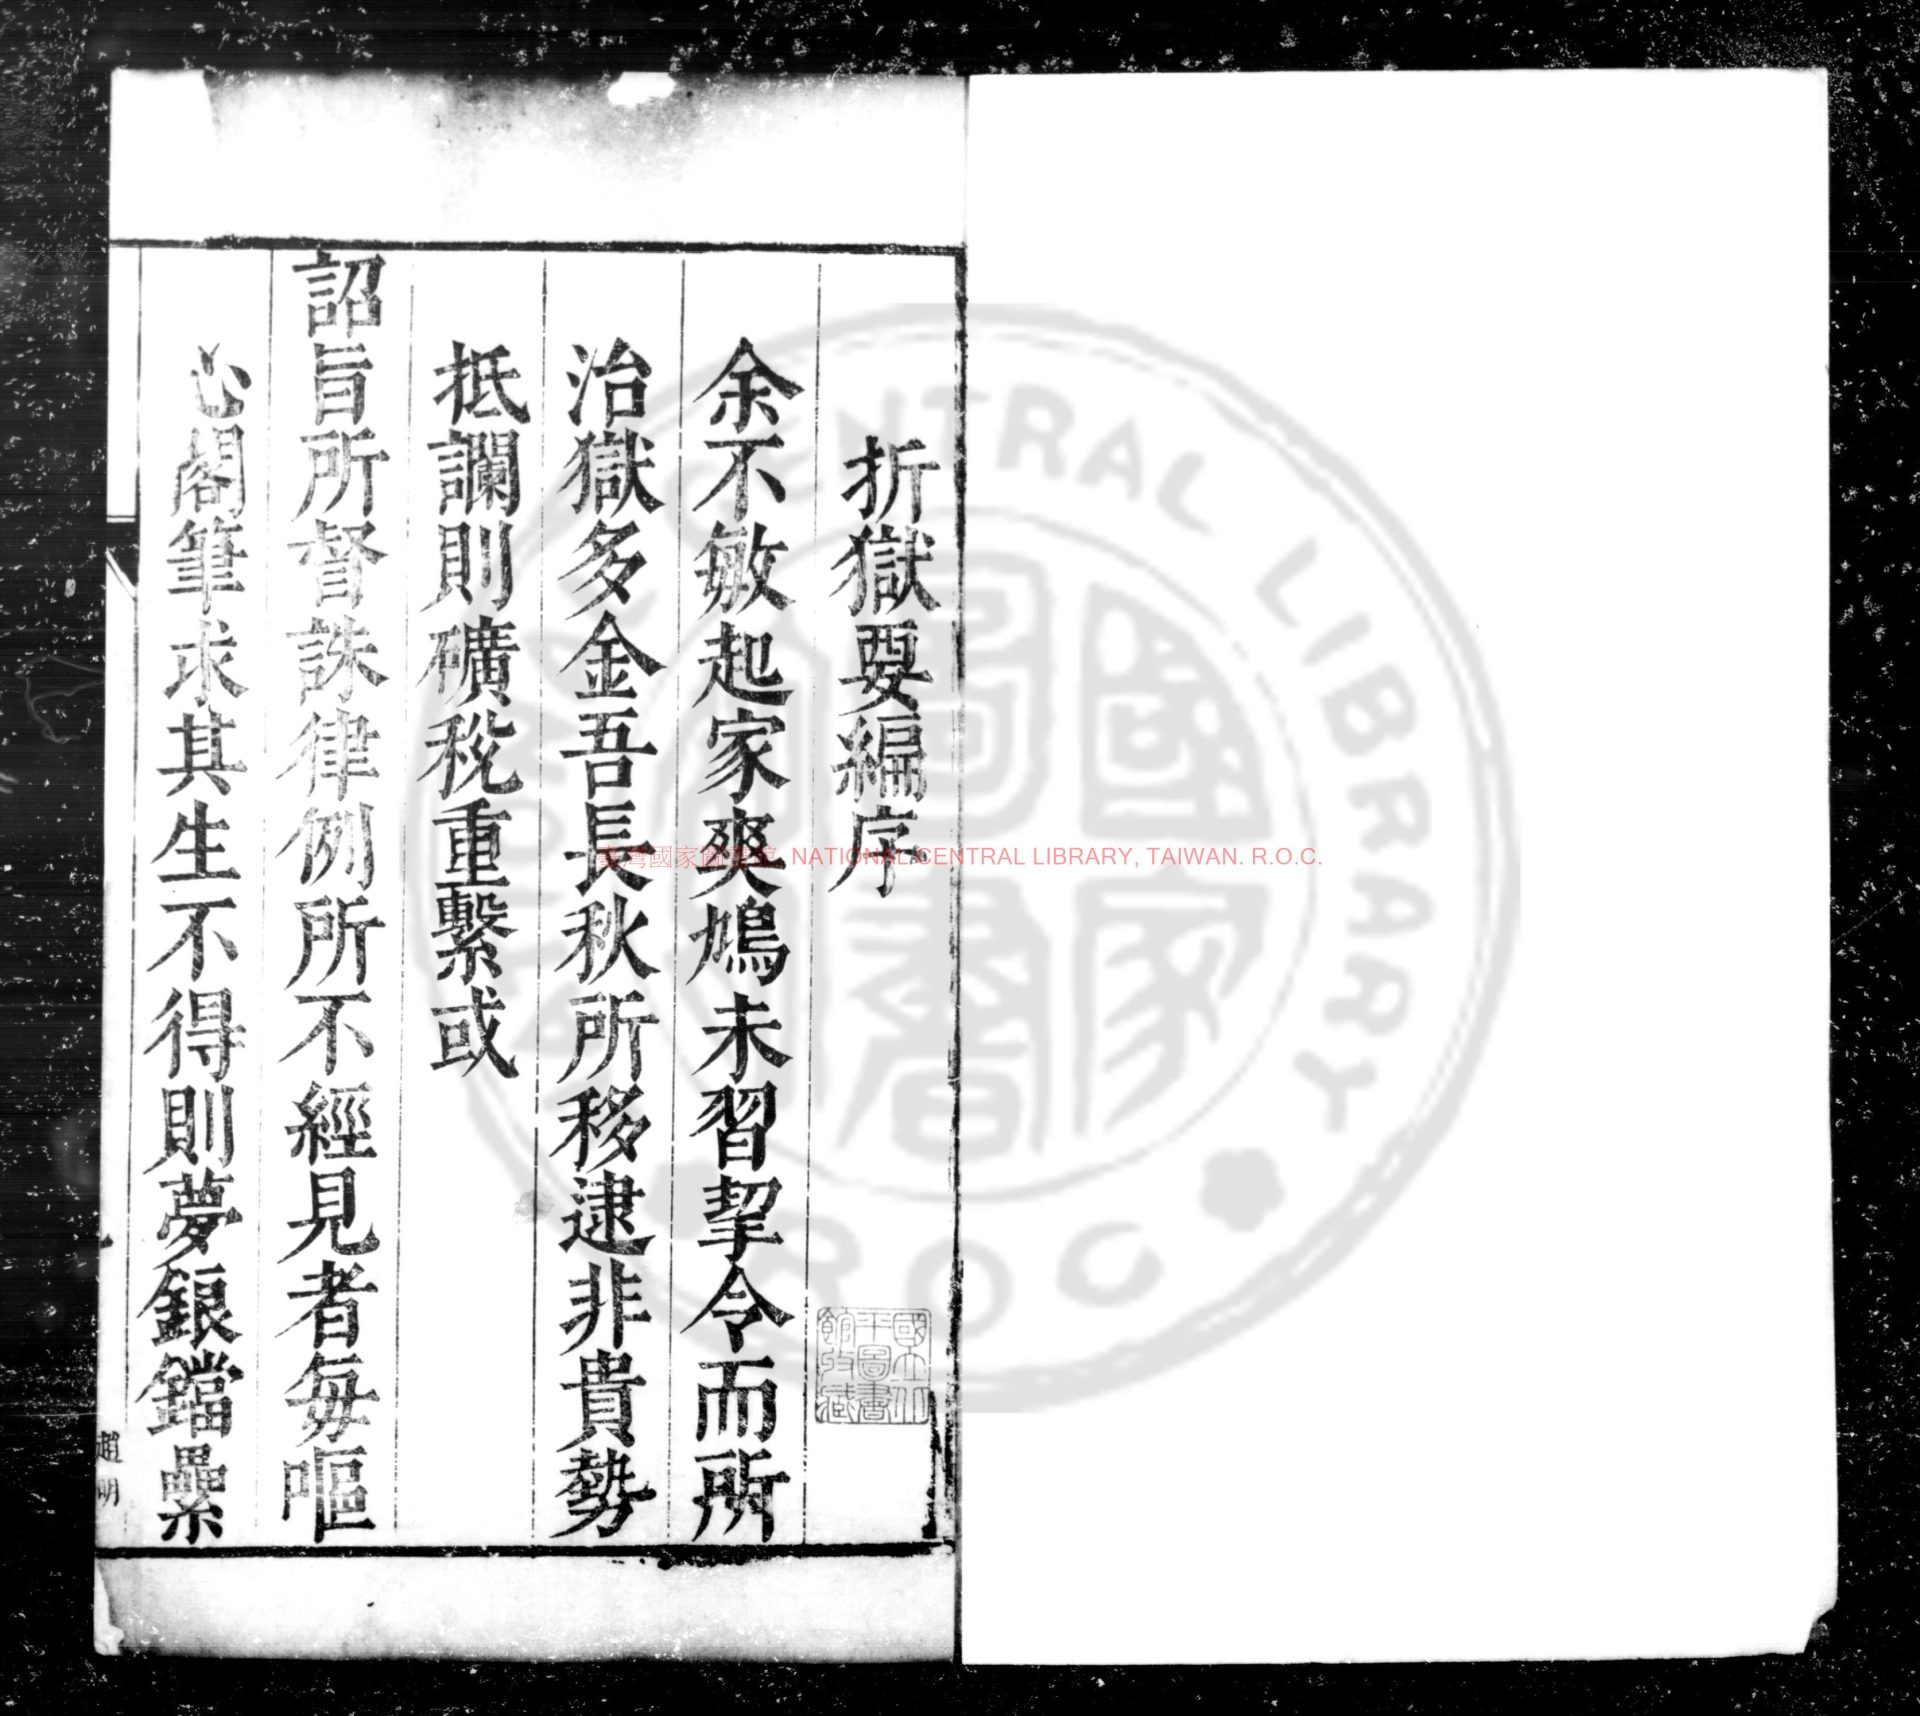 折獄要編序
余不敏起家爽鳩未習挈令而所
治獄多金吾長秋所移逮非貴勢
抵讕則礦稅重繫或
詔旨所督誅律例所不經見者每嘔
心閣筆求其生不得則夢鋃鐺纍
趙明
國立北
平圖書
館收藏
臺灣國家圖書館 NATIONAL CENTRAL LIBRARY, TAIWAN. R.O.C.
NATIONAL CENTRAL LIBRARY
R.O.C
國家
圖書